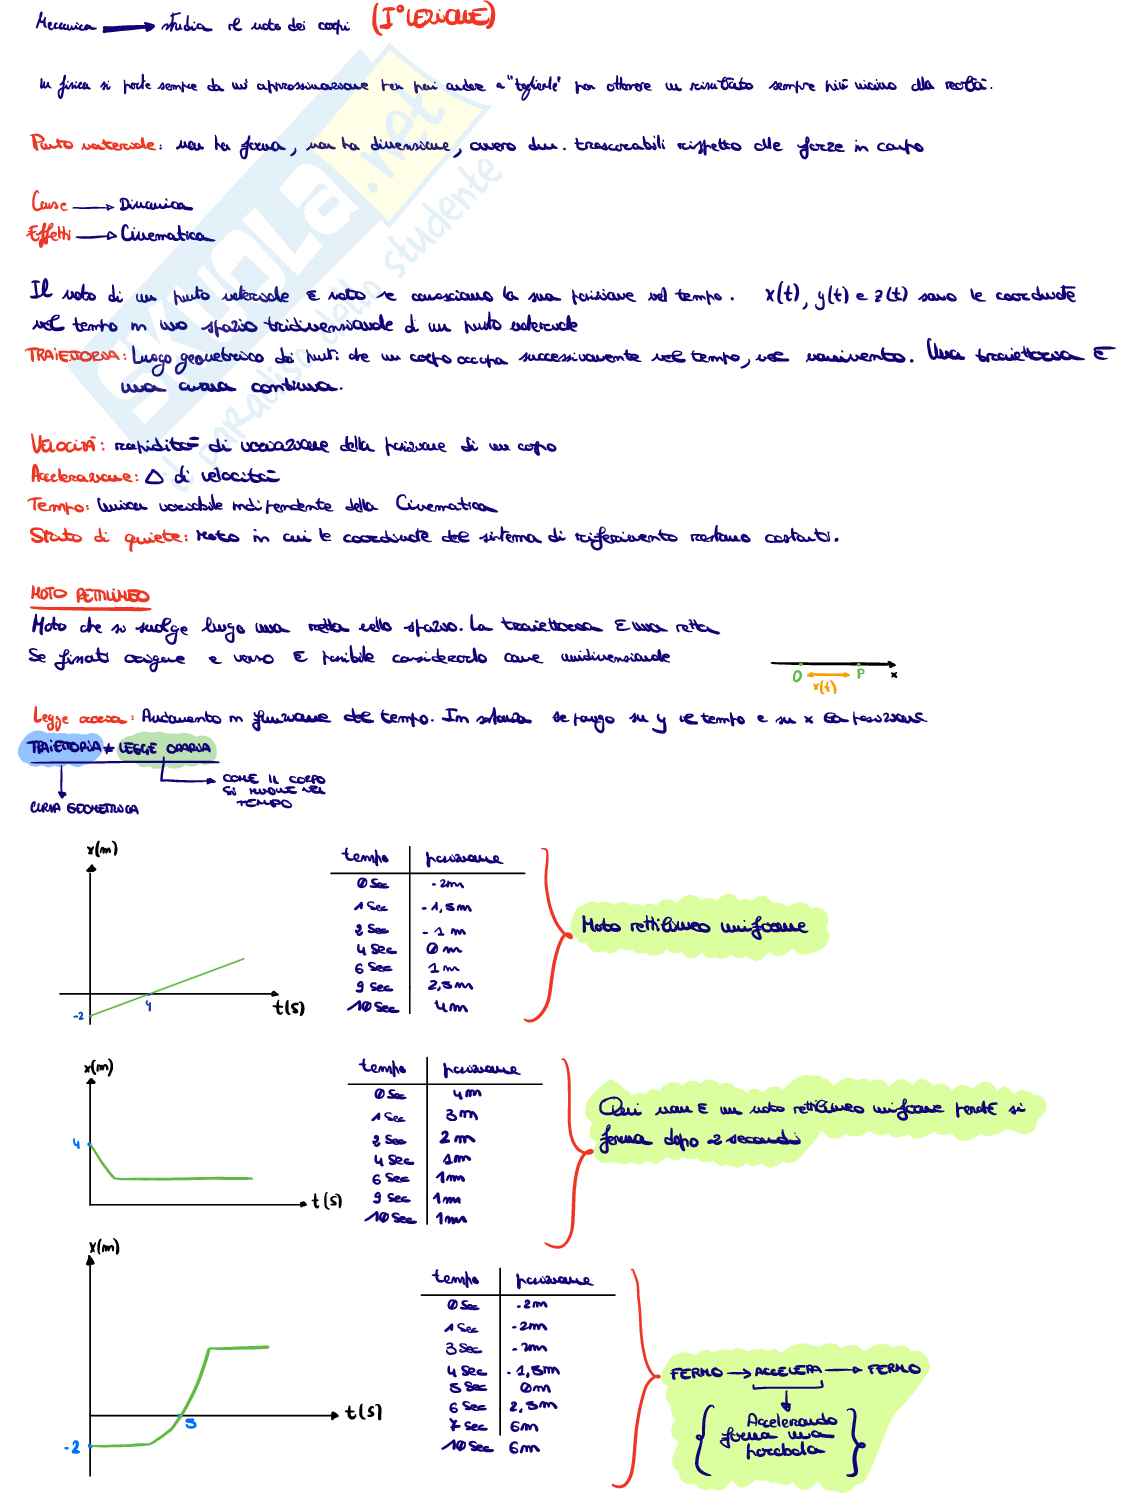 Meccanica → studia il moto dei corpi (I° LEZIONE)
In fisica si parte sempre da un'approssimazione per poi andare a "toglierle" per ottenere un risultato sempre più vicino alla realtà.
Punto materiale: non ha forma, non ha dimensione, ovvero dim. trascurabili rispetto alle forze in campo
Cause → Dinamica
Effetti → Cinematica
Il moto di un punto materiale è noto se conosciamo la sua posizione nel tempo. x(t), y(t) e z(t) sono le coordinate
nel tempo in uno spazio tridimensionale di un punto materiale
TRAIETTORIA: Luogo geometrico dei punti che un corpo occupa successivamente nel tempo, nel movimento. Una traiettoria è
una curva continua.
VELOCITÀ: rapidità di variazione della posizione di un corpo
Accelerazione: Δ di velocità
Tempo: Unica variabile indipendente della Cinematica
Stato di quiete: Moto in cui le coordinate del sistema di riferimento restano costanti.
MOTO RETTILINEO
Moto che si svolge lungo una retta nello spazio. La traiettoria è una retta
Se fissati origine e verso è possibile considerarlo come unidimensionale
O P x
x(t)
Legge oraria: Andamento in funzione del tempo. In sostanza se pongo su y il tempo e su x la posizione
TRAIETTORIA ≠ LEGGE ORARIA
COME IL CORPO
SI MUOVE NEL
TEMPO
CURVA GEOMETRICA
x(m)
-2
4
t(s)
tempo posizione
0 sec -2m
1 sec -1,5m
2 sec -1 m
4 sec 0 m
6 sec 1m
9 sec 2,5m
10 sec 4m
Moto rettilineo uniforme
x(m)
4
t(s)
tempo posizione
0 sec 4m
1 sec 3m
2 sec 2m
4 sec 1m
6 sec 1m
9 sec 1m
10 sec 1m
Qui non è un moto rettilineo uniforme perché si
ferma dopo 2 secondi
x(m)
-2
5
t(s)
tempo posizione
0 sec -2m
1 sec -2m
3 sec -2m
4 sec -1,5m
5 sec 0m
6 sec 2,5m
7 sec 6m
10 sec 6m
FERMO → ACCELERA → FERMO
Accelerando
forma una
parabola
SKUOLA.net
il paradiso dello studente